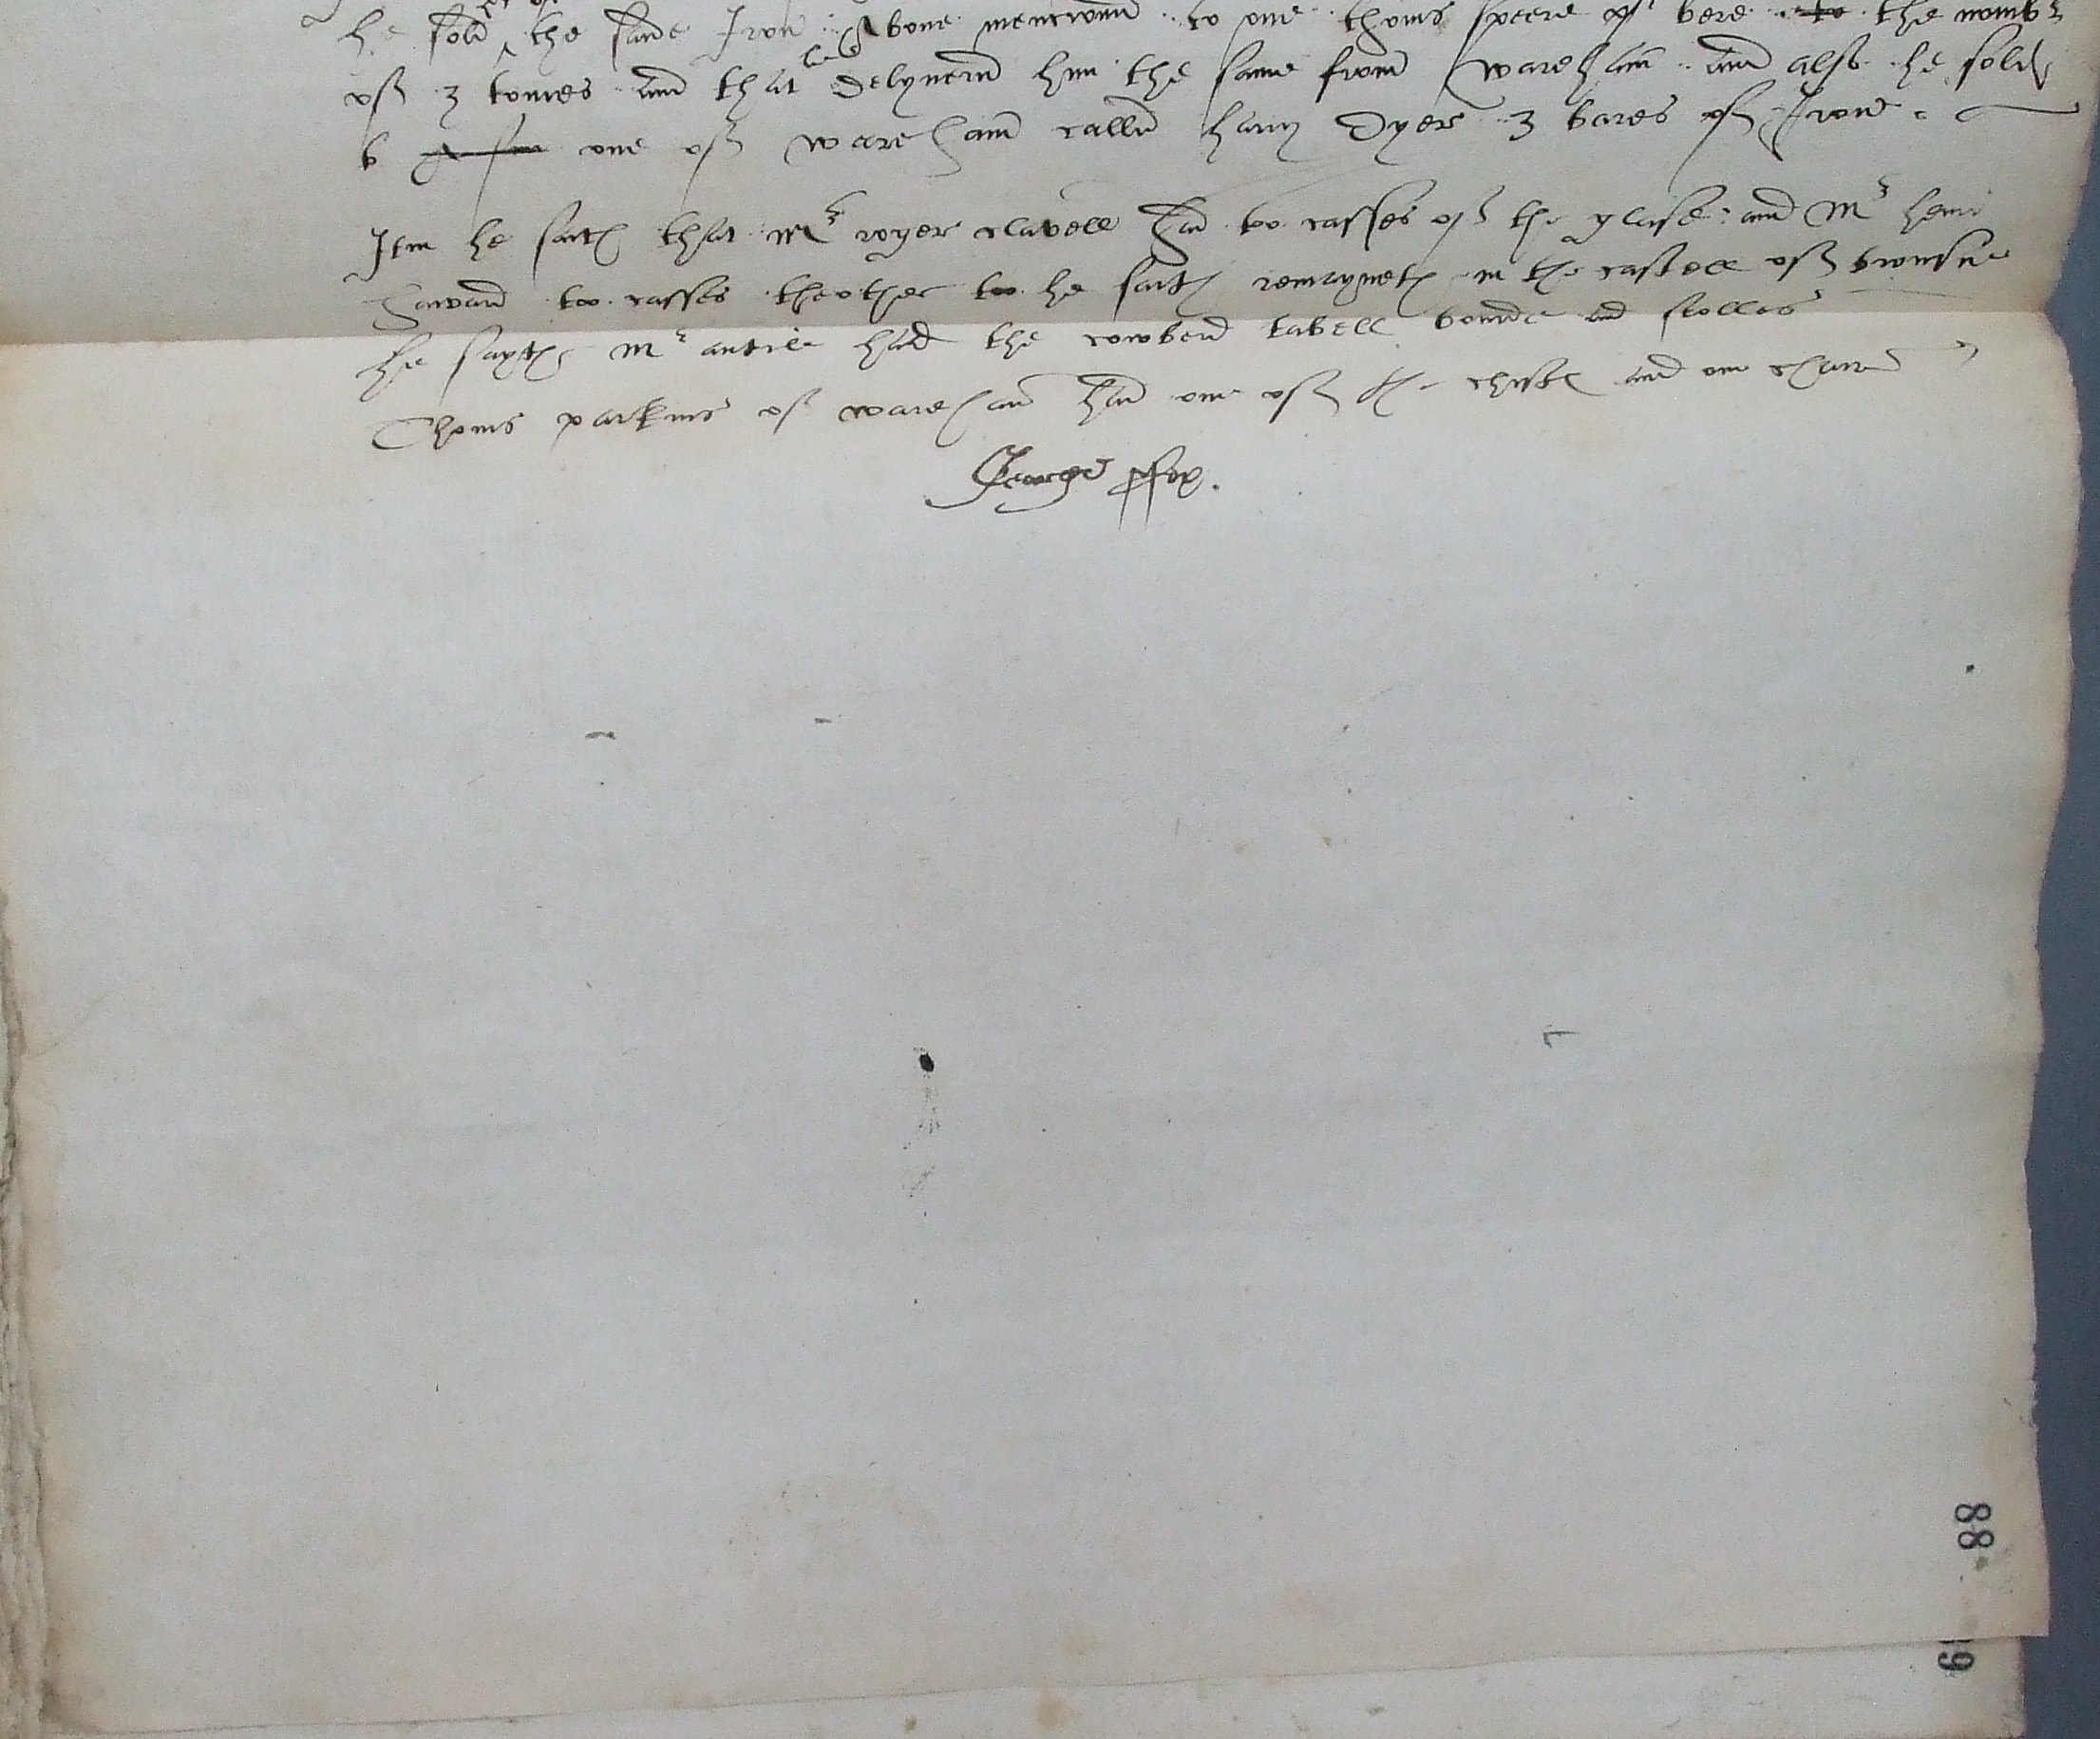 he sold the saide Iron Above mencioned to one thoms speere of bere to the nombr
he
of 3 tonnes and that delyuerid him the same from wareham and also he sold
to one of wareham callid harry Dyer 3 bares of Iron
Itm he saith that Mr royer clavell had too casses of the glasse and Mr henri
haward too casses the other too he saith remayneth in the castell of bronksne
he sayth Mr antile had the cowberd tabell bourde and stolles
Thoms parkins of wareham had one of the chistes and one chaire
George ffox.
88
89